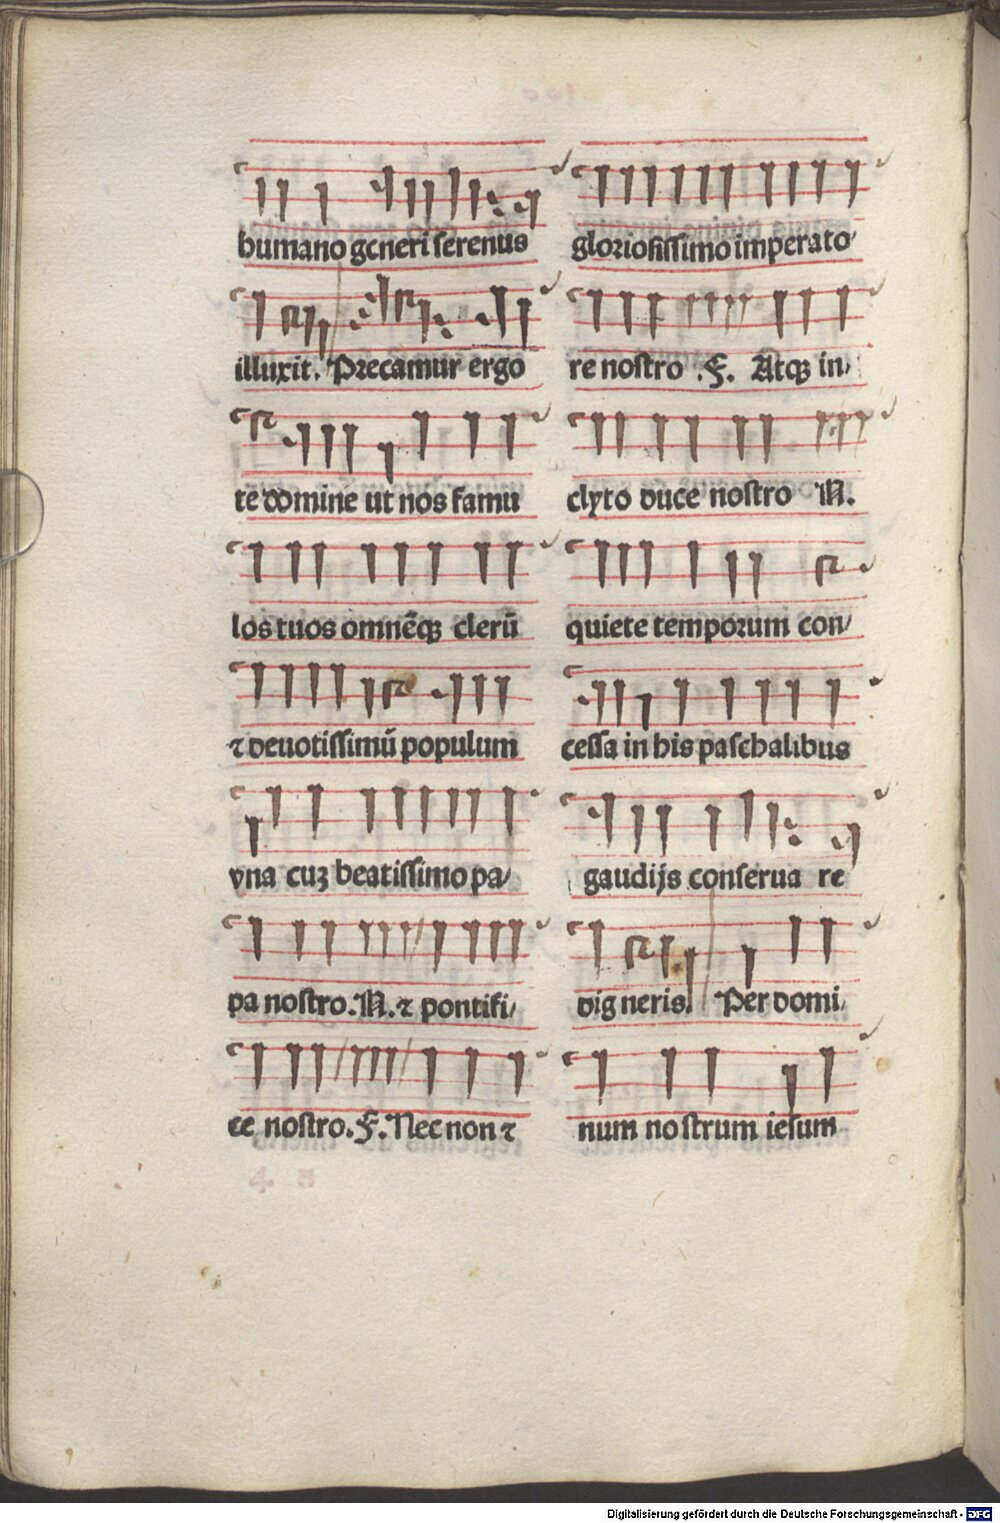 humano generi serenus
illuxit. Precamur ergo
te domine ut nos famu
los tuos omnēqꝫ clerū
⁊ deuotissimū populum
vna cuꝫ beatissimo pa/
pa nostro. N. ⁊ pontifi/
ce nostro. F. Nec non ⁊
gloriosissimo imperato/
re nostro .F. Atqꝫ in/
clyto duce nostro N.
quiete temporum con/
cessa in his paschalibus
gaudijs conserua re
dig neris. Per domi/
num nostrum iesum
Digitalisierung gefördert durch die Deutsche Forschungsgemeinschaft - DFG